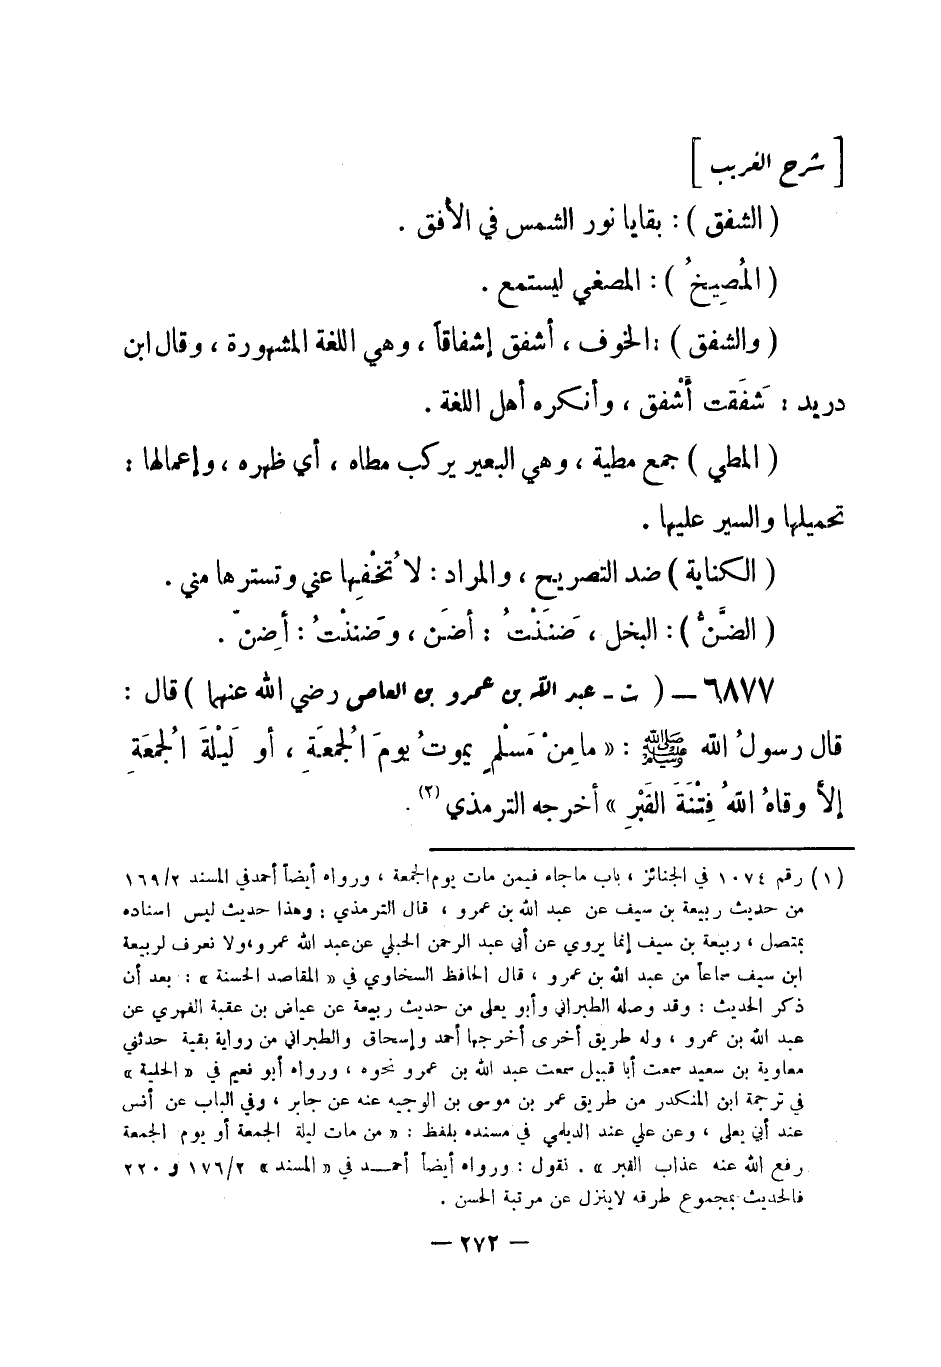 [ شرح الغريب ]
( الشفق ) : بقايا نور الشمس في الأفق .
( المُصِيخُ ) : المصغي ليستمع .
( والشفق ) : الخوف ، أشفق إشفاقاً ، وهي اللغة المشهورة ، وقال ابن
دريد : شَفَقت أَشْفق ، وأنكره أهل اللغة .
( المطي ) جمع مطية ، وهي البعير يركب مطاه ، أي ظهره ، وإعمالها :
تحميلها والسير عليها .
( الكناية ) ضد التصريح ، والمراد : لا تُخْفِها عني وتسترها مني .
( الضَّنُّ ) : البخل ، ضَنَنْتُ : أضَن ، وضَنِنْتُ : أضِنّ .
٦٨٧٧ – ( ت - عبد اللّه بن عمرو بن العاص رضي الله عنهما ) قال :
قال رسولُ الله ﷺ : « ما مِنْ مُسْلمٍ يموتُ يومَ الجُمعَةِ ، أو لَيْلَةَ الجُمعَةِ
إلاَّ وقاهُ اللهُ فِتْنَةَ القَبْرِ » أخرجه الترمذي (٢) .
(١) رقم ١٠٧٤ في الجنائز ، باب ماجاء فيمن مات يوم الجمعة ، ورواه أيضاً أحمد في المسند ١٦٩/٢
من حديث ربيعة بن سيف عن عبد الله بن عمرو ، قال الترمذي : وهذا حديث ليس اسناده
بمتصل ، ربيعة بن سيف إنما يروي عن أبي عبد الرحمن الحبلي عن عبد الله عمرو ، ولا نعرف لربيعة
ابن سيف سماعاً من عبد الله بن عمرو ، قال الحافظ السخاوي في « المقاصد الحسنة » : بعد أن
ذكر الحديث : وقد وصله الطبراني وأبو يعلى من حديث ربيعة عن عياض بن عقبة الفهري عن
عبد الله بن عمرو ، وله طريق أخرى أخرجها أحمد وإسحاق والطبراني من رواية بقية حدثني
معاوية بن سعيد سمعت أبا قبيل سمعت عبد الله بن عمرو نحوه ، ورواه أبو نعيم في « الحلية »
في ترجمة ابن المنكدر من طريق عمر بن موسى بن الوجيه عنه عن جابر ، وفي الباب عن أنس
عند أبي يعلى ، وعن علي عند الديلمي في مسنده بلفظ : « من مات ليلة الجمعة أو يوم الجمعة
رفع الله عنه عذاب القبر » . نقول : ورواه أيضاً أحمد في « المسند » ١٧٦/٢ و ٢٢٠
فالحديث بمجموع طرقه لا ينزل عن مرتبة الحسن .
– ٢٧٢ –